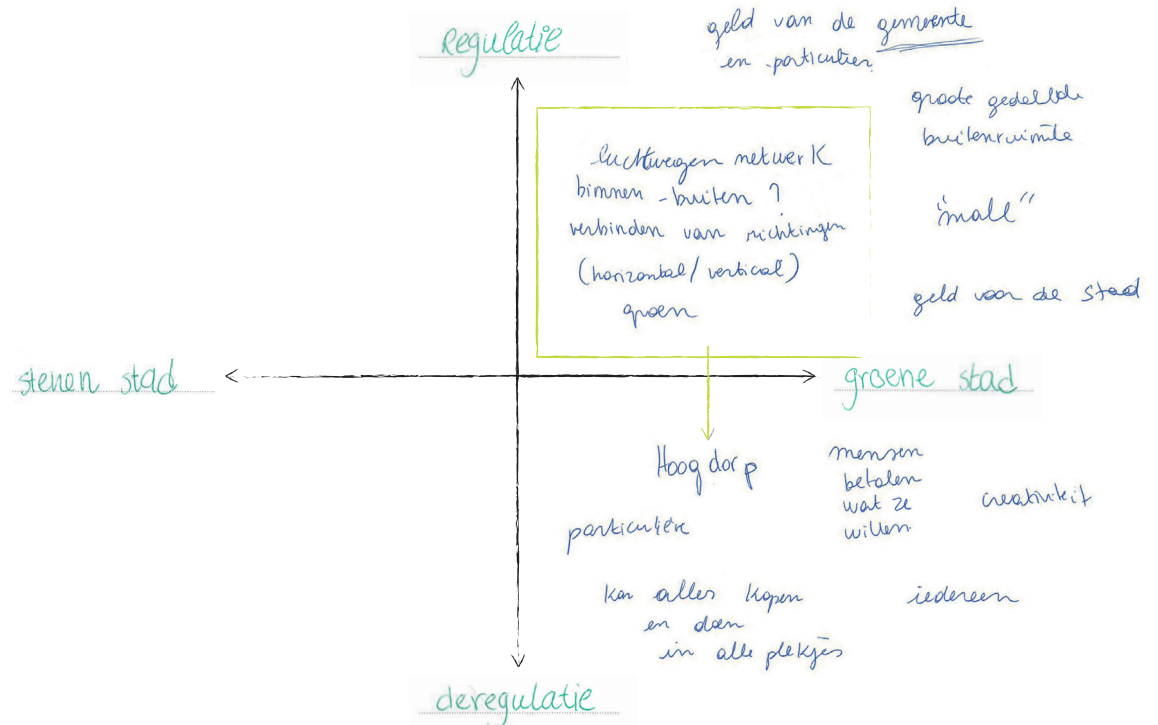 Regulatie
geld van de gemeente
en particulier
groote gedeelde
buitenruimte
luchtwegen netwerk
binnen - buiten ?
verbinden van richtingen
(horizontal / vertical)
groen
"mall"
geld voor de stad
stenen stad
groene stad
Hoog dorp
mensen
betalen
wat ze
willen
creativiteit
particulière
kan alles kopen
en doen
in alle plekjes
iedereen
deregulatie